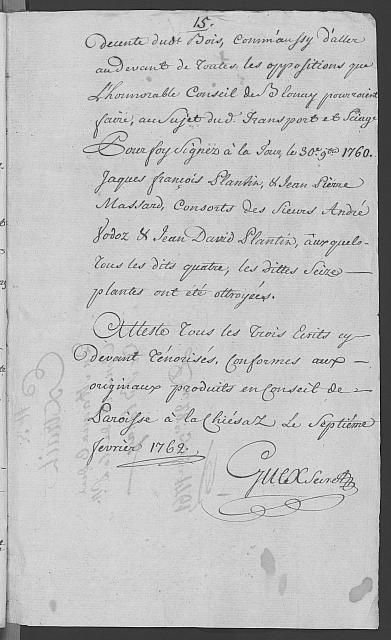 15.
Decente dudt. Bois, comm'aussy d'aller
audevant de Toutes les oppositions que
L'honnorable Conseil de Blonay pourroient
faire, au Sujet du d. Transport et Sciage
Pour foy Signez à la Tour, le 30e. 9bre 1760.
Jaques françois Plantin, & Jean Pierre
Massard, Consorts des Sieurs André
Vodoz & Jean David Plantin, auxquels
Tous les dits quatre, les dittes Seize
plantes ont été ottroyées.
Atteste Tous les Trois Ecrits cy
devant Ténorisés, Conformes aux
originaux produits en Conseil de
Paroisse à la Chiésaz Le Septième
fevrier 1762.